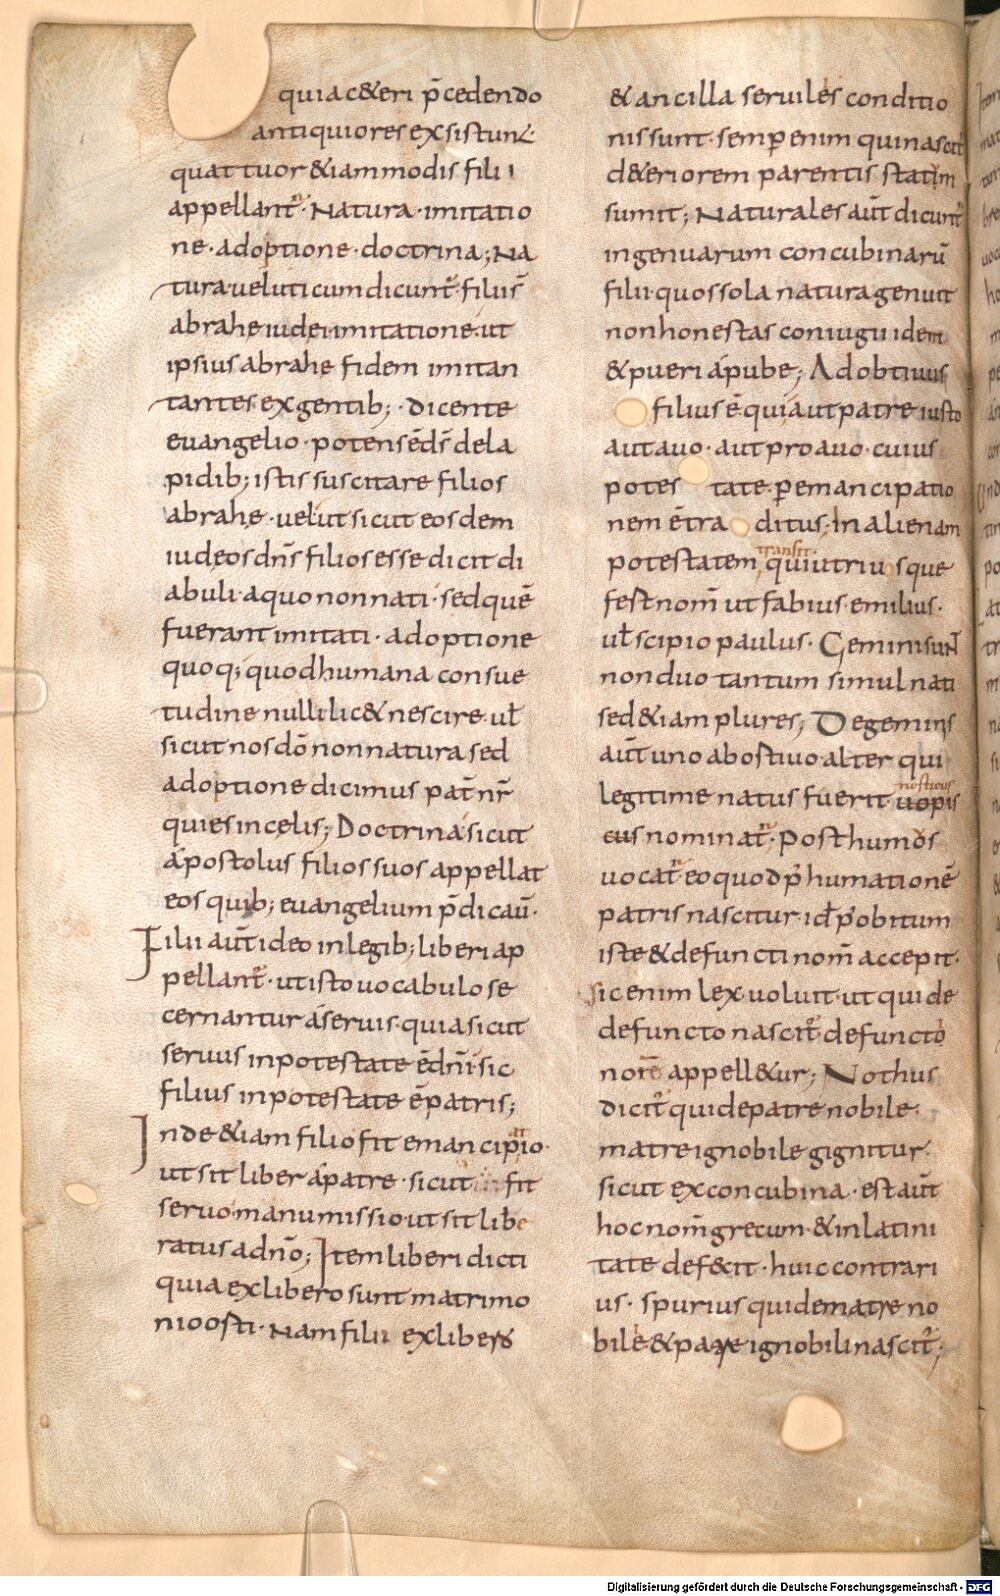 quiac&eri p̄cedendo
antiquiores exsistunt·
quattuor &iammodis filii
appellant᷑· Natura· imitatio
ne· adoptione· doctrina; Na
tura ueluti cum dicunt᷑· filius̄
abrahę iudei· imitatione· ut
ipsius abrahe fidem imitan
tantes ex gentib; · dicente
euangelio· potens ē ds̄ de la
pidib; istis suscitare filios
abrahę· uelut sicut eosdem
iudeos dn̄s filios esse dicit di
abuli· a quo non nati· sed quē
fuerant imitati· adoptione
quoq; quod humana consue
tudine nulli lic& nescire· ul̄
sicut nos dō non natura sed
adoptione dicimus pat̄ nr̄
qui es in celis; Doctrina sicut
apostolus filios suos appellat
eos quib; euangelium p̄dicau̅·
Filii aut̄ ideo in legib; liberi ap
pellant᷑· ut isto uocabulo se
cernantur a seruis· quia sicut
seruus in potestate ē dn̄i· sic
filius in potestate ē patris;
Inde &iam filio fit emancipio
ut sit liber a patre· sicut fit
seruo manumissio ut sit libe
ratus a dn̄o; Item liberi dicti
quia ex libero sunt matrimo
nio osti· Nam filii ex libero
& ancilla seruiles conditio
nis sunt· semp̱ enim qui nascit᷑
d&eriorem parentis statim
sumit; Naturales aut̄ dicunt᷑
ingenuarum concubinarū
filii· quos sola natura genuit
non honestas coniugii idem
& pueri a pube; Adobtiuus
filius ē qui aut patre iusto
aut auo· aut proauo· cuius
potestate· p̱ emancipatio
nem ē traditus· in alienam
potestatem, qui utriusque
transit·
fest nom̄ ut fabius· emilius·
ul̄ scipio paulus· Gemini sun̄t
non duo tantum simul nati
sed &iam plures; De geminis
aut̄ uno abostiuo· alter qui
legitime natus fuerit· uopis
cus nominat᷑· Posthumos
uocat᷑· eo quod p᷑ humationē
patris nascitur· id̄ p᷑ obitum
iste & defuncti nom̄ accepit·
sic enim lex uoluit· ut qui de
defuncto nascit᷑· defuncto
nom̄ appell&ur; Nothus
dicit᷑ qui de patre nobile·
matre ignobile gignitur·
sicut ex concubina· est aut̄
hoc nom̄ grecum· & in latini
tate deficit· huic contrari
us· spurius qui de matre no
bile & patre ignobili nascit᷑;
Digitalisierung gefördert durch die Deutsche Forschungsgemeinschaft - DFG